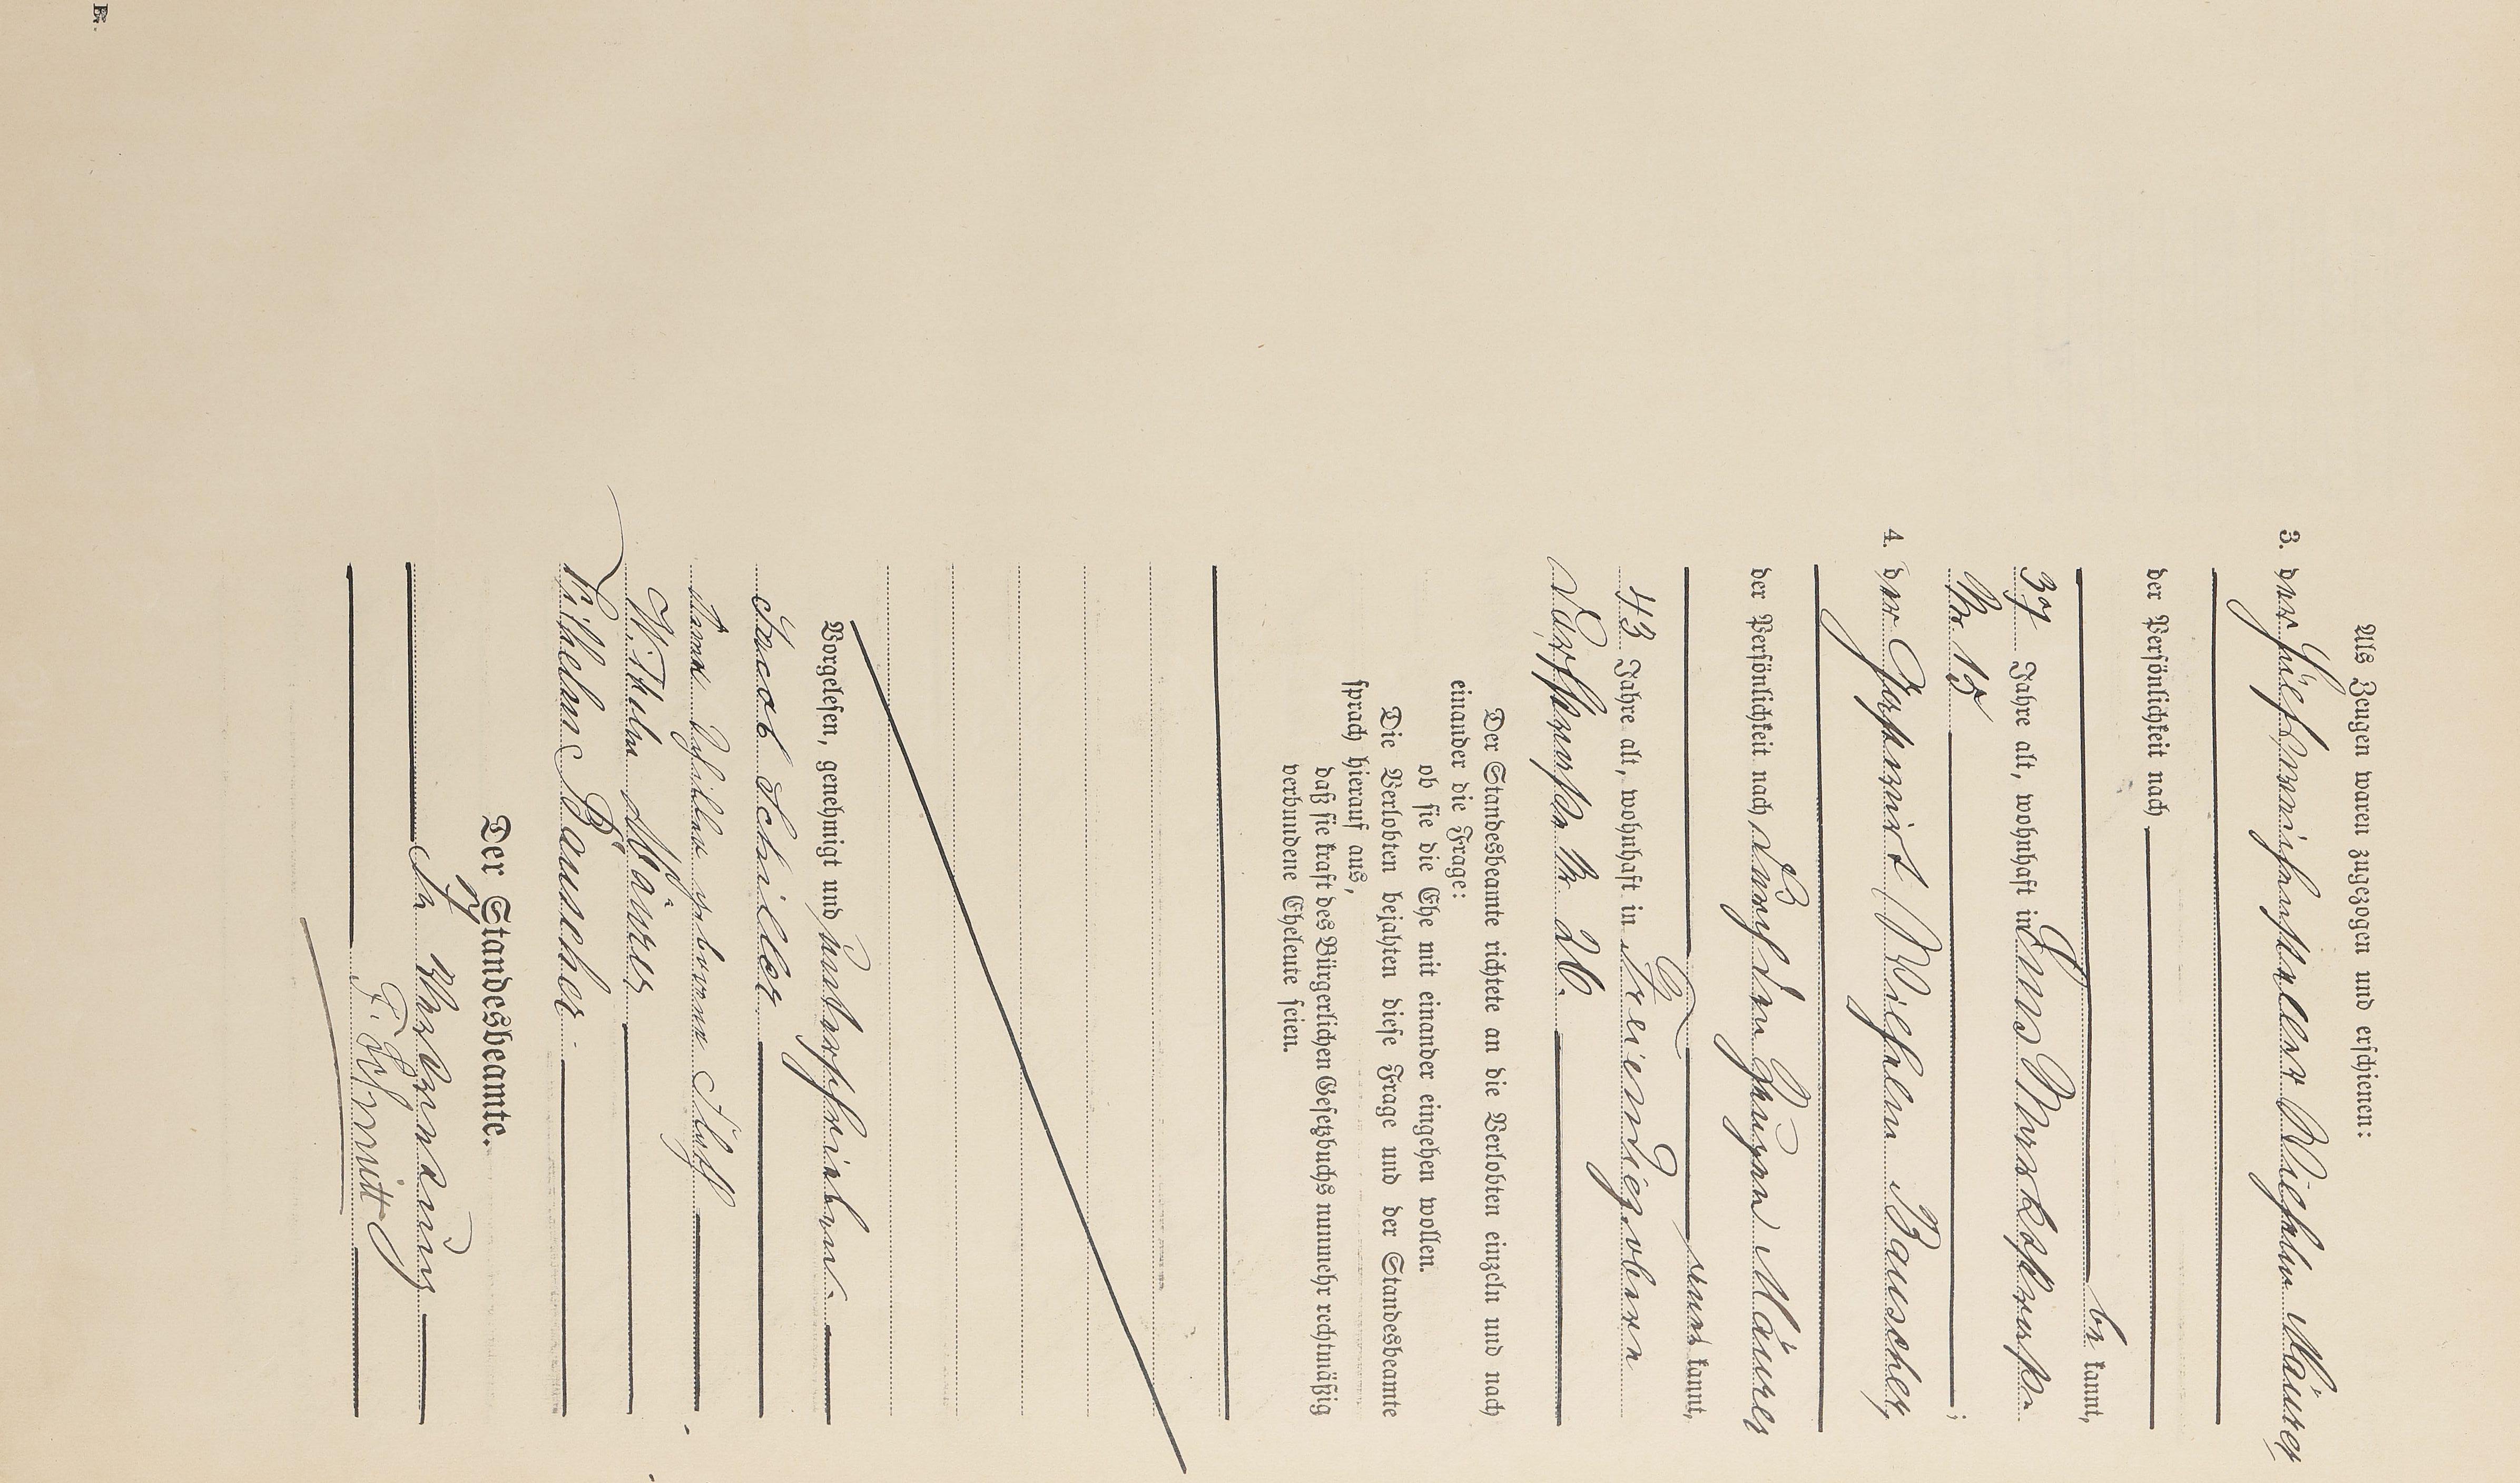 Als Zeugen waren zugezogen und erschienen:
3. der Wilhelm Mäurer
der Persönlichkeit nach
be kannt,
37 Jahre alt, wohnhaft in
Nr 15 ;
4. der Gastwirt Wilhelm Bauscher,
der Persönlichkeit nach durch den Zeugen Mäurer
aner kannt,
43 Jahre alt, wohnhaft in Freiendiez, obere
Nr 26.
Der Standesbeamte richtete an die Verlobten einzeln und nach
einander die Frage:
ob sie die Ehe mit einander eingehen wollen.
Die Verlobten bejahten diese Frage und der Standesbeamte
sprach hierauf aus,
daß sie kraft des Bürgerlichen Gesetzbuchs nunmehr rechtmäßig
verbundene Eheleute seien.
Vorgelesen, genehmigt und unterschrieben.
Jacob Schiller
Schiller geborene
Wilhelm Mäurer
Wilhelm Bauscher.
Der Standesbeamte.
In Vertretung
F. Schmitt
Br.